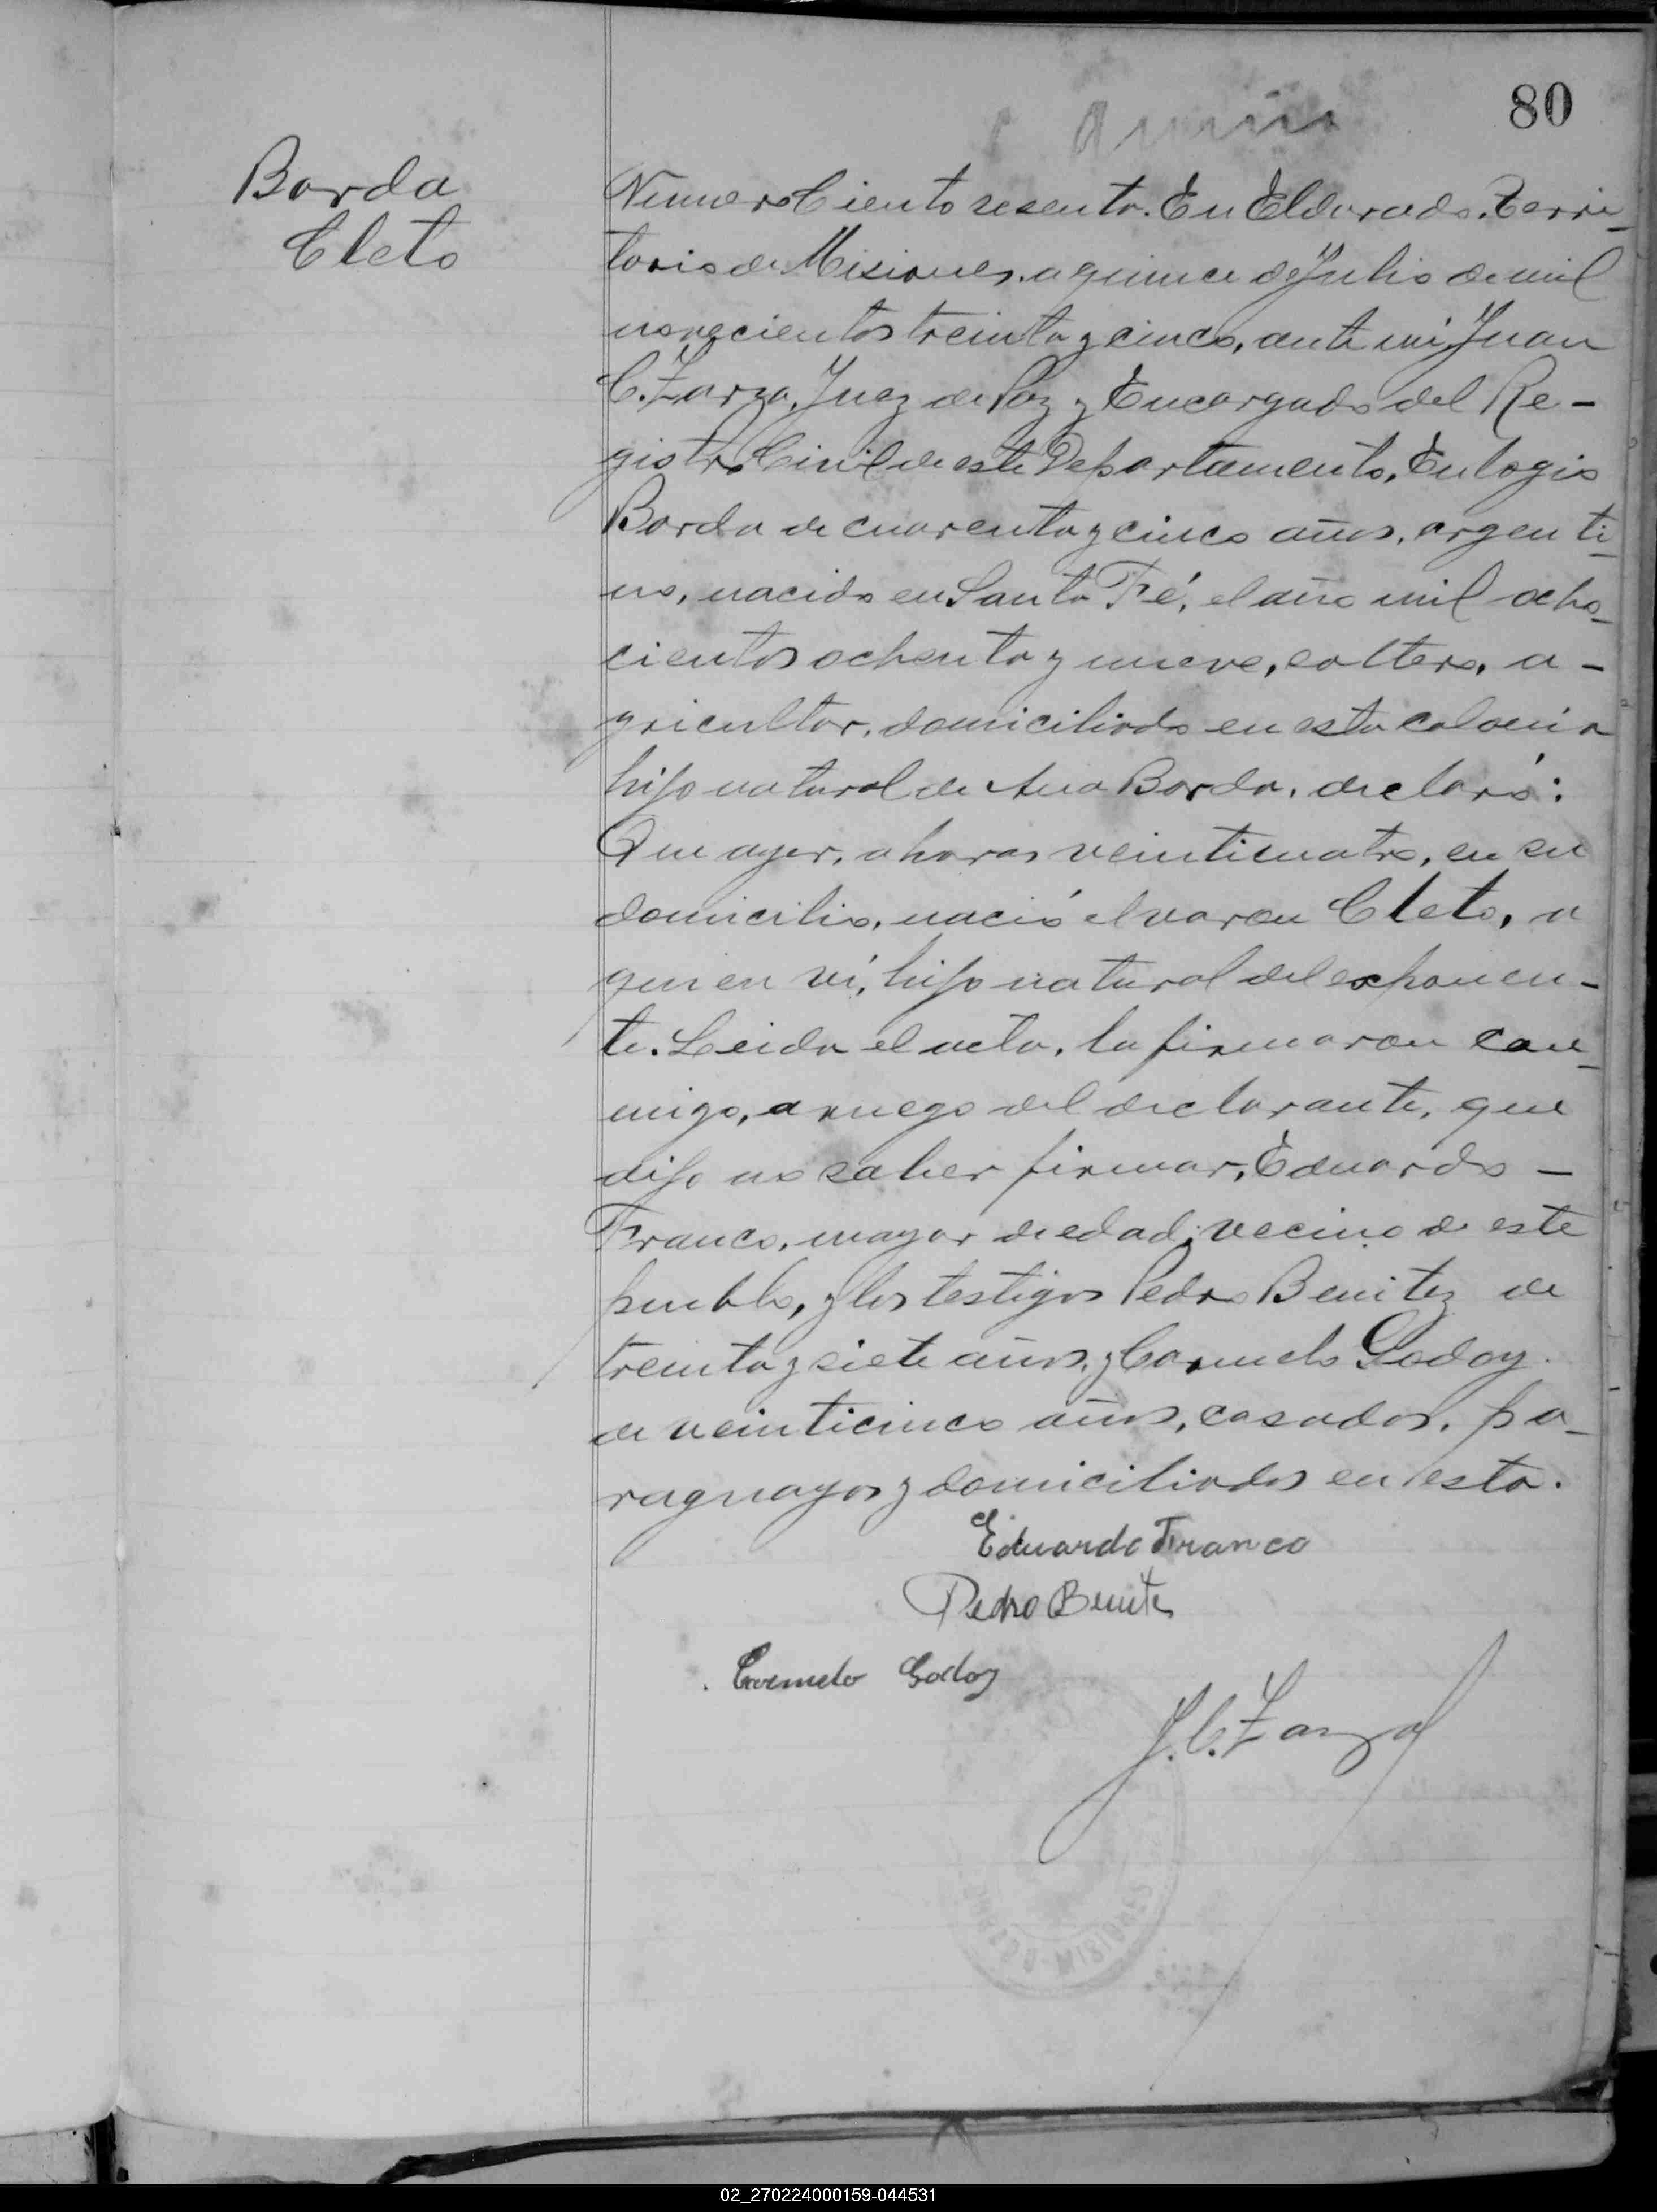 80
Borda
Cleto
Número Ciento sesenta. En Eldorado. Terri-
torio de Misiones. a quince de Julio de mil
novecientos treinta y cinco, ante mí, Juan
C. Zarza, Juez de Paz y Encargado del Re-
gistro Civil de este Departamento, Eulogio
Borda de cuarenta y cinco años, argenti-
no, nacido en Santa Fé, el año mil ocho-
cientos ochenta y nueve, soltero, a-
gricultor, domiciliado en esta colonia
hijo natural de Ana Borda, declaró:
Que ayer, a horas veinticuatro, en su
domicilio, nació el varon Cleto, a
quien ví, hijo natural del exponen-
te. Leida el acta, la firmaron con-
migo, a ruego del declarante, que
dijo no saber firmar, Eduardo -
Franco, mayor de edad, vecino de este
pueblo, y los testigos Pedro Benitez de
treinta y siete años, y Carmelo Godoy.
de veinticinco años, casados, pa-
raguayos y domiciliados en esta.
Eduardo Franco
Pedro Benitez
Carmelo Godoy
J. C. Zarza
MISIONES
02_270224000159-044531